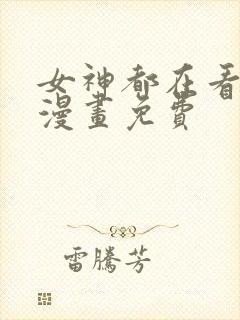 女神都在看
漫畫免費
雷騰芳